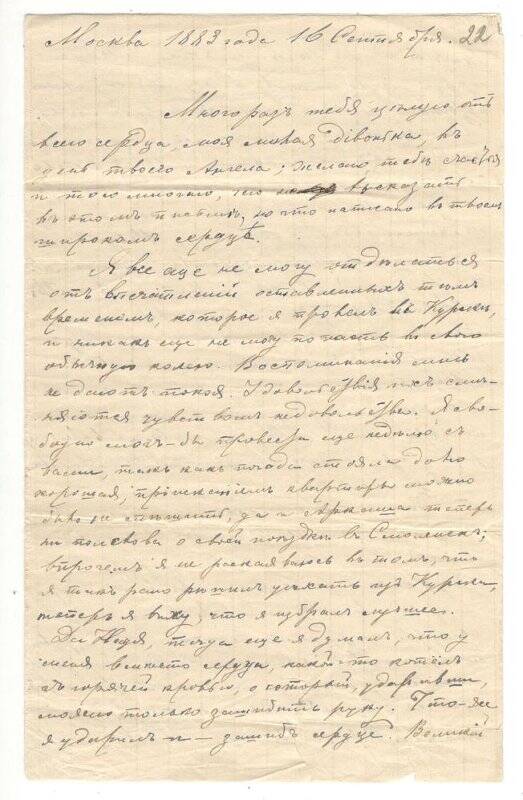 Москва 1883 года 16 Сентября. 22
Много разъ тебя цѣлую отъ
всего сердца, моя милая дівонька, въ
день твоего Ангела; желаю тебѣ счастья
и того многаго, чего высказать
въ этомъ письмѣ, но что написано въ твоемъ
широкомъ сердцѣ.
Я все еще не могу отдѣлаться
отъ впечатлѣній оставленныхъ тѣмъ
временемъ, которое я провелъ въ Курскѣ,
и никакъ еще не могу попасть въ свою
обычную колею. Воспоминанія мнѣ
не даютъ покоя. Удовольствія ихъ смѣ-
няются чувствомъ недовольства. Я сво-
бодно могъ-бы провести еще недѣлю съ
вами, такъ какъ погода стояла
хорошая, пріисканіемъ квартиры можно
было не спѣшить, да и теперь
ни полслова о своей поѣздкѣ въ Смоленскъ;
впрочемъ я не раскаиваюсь въ томъ, что
я такъ рано рѣшилъ уѣхать изъ Курска,
теперь я вижу, что я избралъ лучшее.
Да Надя, тогда еще я думалъ, что у
меня вмѣсто сердца, какой-то котелъ
съ горячей кровью, о который, ударивши,
можно только зашибить руку. Что-же
я ударилъ и — зашибъ сердце. Великій